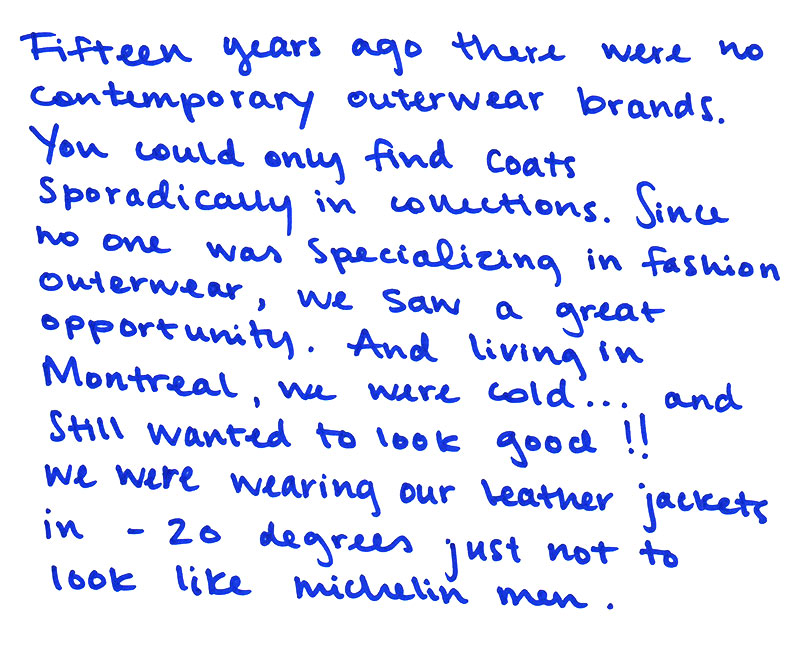 Fifteen years ago there were no
contemporary outerwear brands.
You could only find coats
sporadically in collections. Since
no one was specializing in fashion
outerwear, we saw a great
opportunity. And living in
Montreal, we were cold... and
still wanted to look good !!
we were wearing our leather jackets
in -20 degrees just not to
look like michelin men.